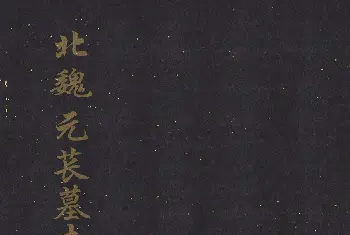 北魏元苌墓